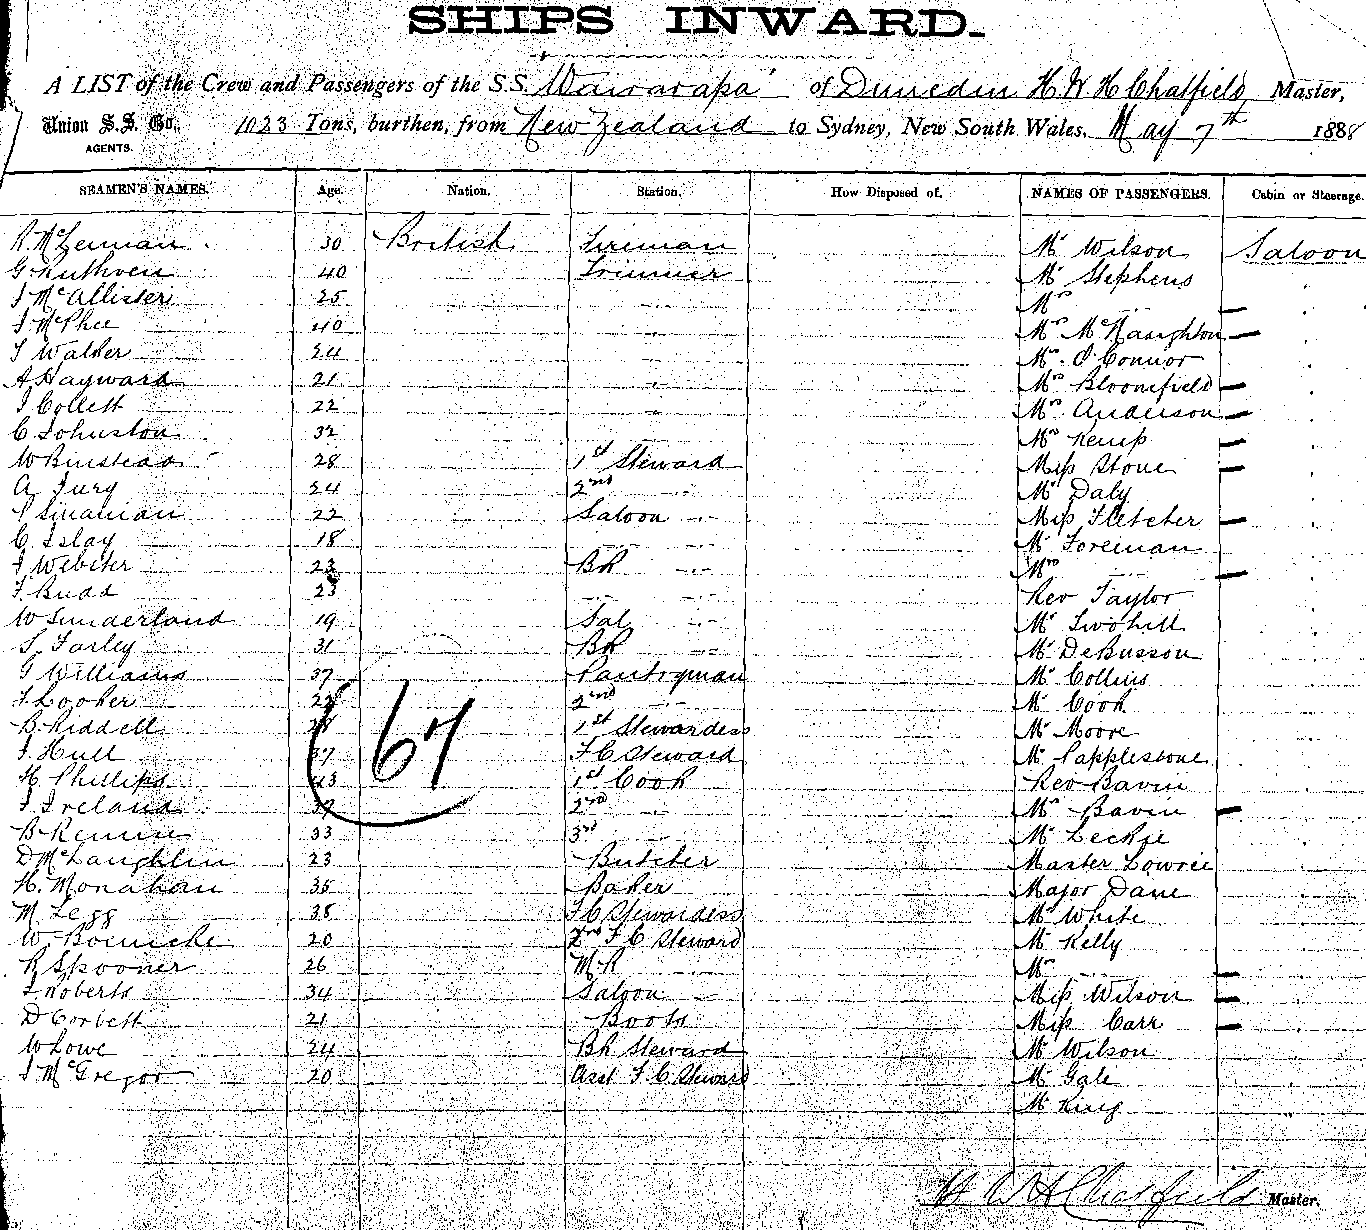 SHIPS INWARD.
A LIST of the Crew and Passengers of the S.S. Wairarapa of Dunedin H W H Chatfield Master,
Union S.S. Co. 1023 Tons, burthen, from New Zealand to Sydney, New South Wales, May 7th 1888
AGENTS.
SEAMEN'S NAMES. Age. Nation. Station. How Disposed of. NAMES OF PASSENGERS. Cabin or Steerage.
R McLennan 30 British Fireman Mr Wilson Saloon
G Ruthven 40 Trimmer Mr Stephens
J McAllister 25 Mrs
J McPhee 40 Mrs McNaughton
T Walker 24 Mr O'Connor
A Hayward 21 Mrs Bloomfield
J Collett 22 Mrs Anderson
C Johnston 32 Mrs Kemp
W Binstead 28 1st Steward Miss Stone
A Jury 24 2nd Mr Daly
22 Saloon Miss Fletcher
C Islay 18 Mr Foreman
J Webster 23 BR Mrs
F Budd 23 Rev Taylor
W Sunderland 19 Sal Mr Twohill
S Farley 31 BR Mr DeBusson
G Williams 37 Pantryman Mr Collins
J Looker 22 2nd Mr Cook
B Riddell 1st Stewardess Mr Moore
J Hull 37 F C Steward Mr Papplestone
H Phillips 43 1st Cook Rev Bavin
J Ireland 2nd Mrs Bavin
B Rennie 33 3rd Mr Leckie
D McLaughlin 23 Butcher Master Lowrie
H. Monahan 35 Baker Major Dane
M Legg 38 F C Stewardess Mr White
W. Boenicke 20 2nd F C Steward Mr Kelly
R Spooner 26 M R Mrs
J Roberts 34 Saloon Miss Wilson
D Corbett 21 Boots Miss Carr
W Lowe 24 BR Steward Mr Wilson
J McGregor 20 Asst F C Steward Mr Gale
Mr King
67
H W H Chatfield Master.